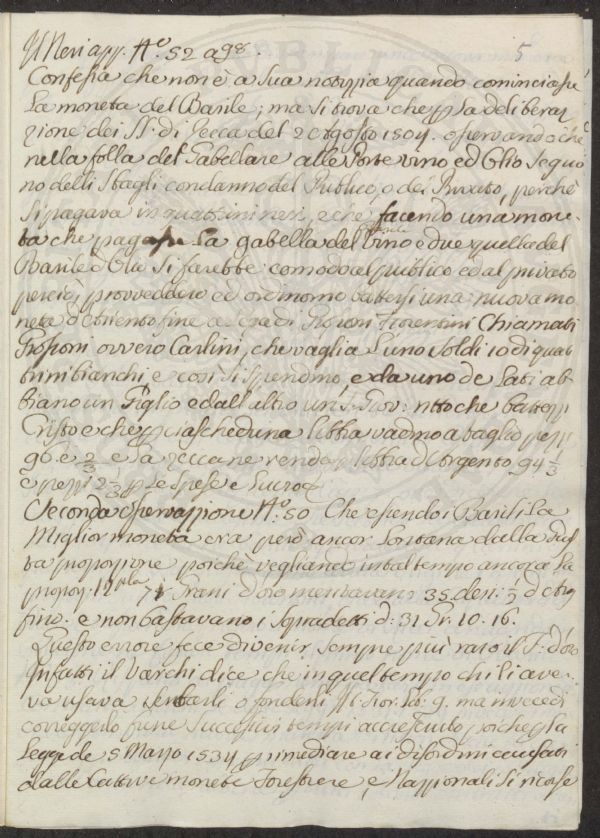 Il Neri app. N.º 52 a 98. 5
Confessa che non è a sua notizzia quando cominciasse
La moneta del Barile; ma si trova che p la delibera
zione dei SS. di Zecca del 20 Agosto 1504. osservando che
nella folla del Gabellare alle Porte vino ed Olio seguo
no delli Sbagli con danno del Publico, o dei Privato, perchè
si pagava in quattrini neri, e che facendo una mone-
ta che pagasse La gabella del Vino e due quella del
Barile d'Olio si farebbe comodo al publico ed al privato
perciò provveddero ed ordinorno battersi una nuova mo
neta d'Ariento fine a Fiorentini Chiamati
Grossoni ovvero Carlini, che vaglia l'uno soldi 10 di quat
trini bianchi e così si spendino, e da uno de Lati ab-
biano un Giglio e dall'altro un S. Giov: ritto che battezzi
Cristo e che p ciascheduna libbra vadino a taglio pezzi
96 e 2/3 e la Zecca ne renda p libbra d'Argento 94 1/3
e pezzi 2 1/3 p le spese e Lucro
Seconda osservazzione N.º 50 Che essendo i Barili La
Miglior moneta era però ancor Lontana dalla Gius
ta proporzione poichè vegliando in tal tempo ancora La
propor. 12pla 72 Grani d'oro meritavano 35 den: 1/2 d'Arg
fino. e non bastavano i sopradetti d: 31 Gr. 10. 16.
Questo errore fece divenir sempre più raro il F: d'oro
Infatti il Varchi dice che in quel tempo chi li ave-
va usava serbarli o fonderli Il Fior. Lib. 9. ma invece di
correggerlo fu ne successivi tempi accresciuto poiche p la
Legge de 5 Marzo 1534 p rimediare ai disordini causati
dalle Cattive monete Forestiere, e Nazzionali si ricorse